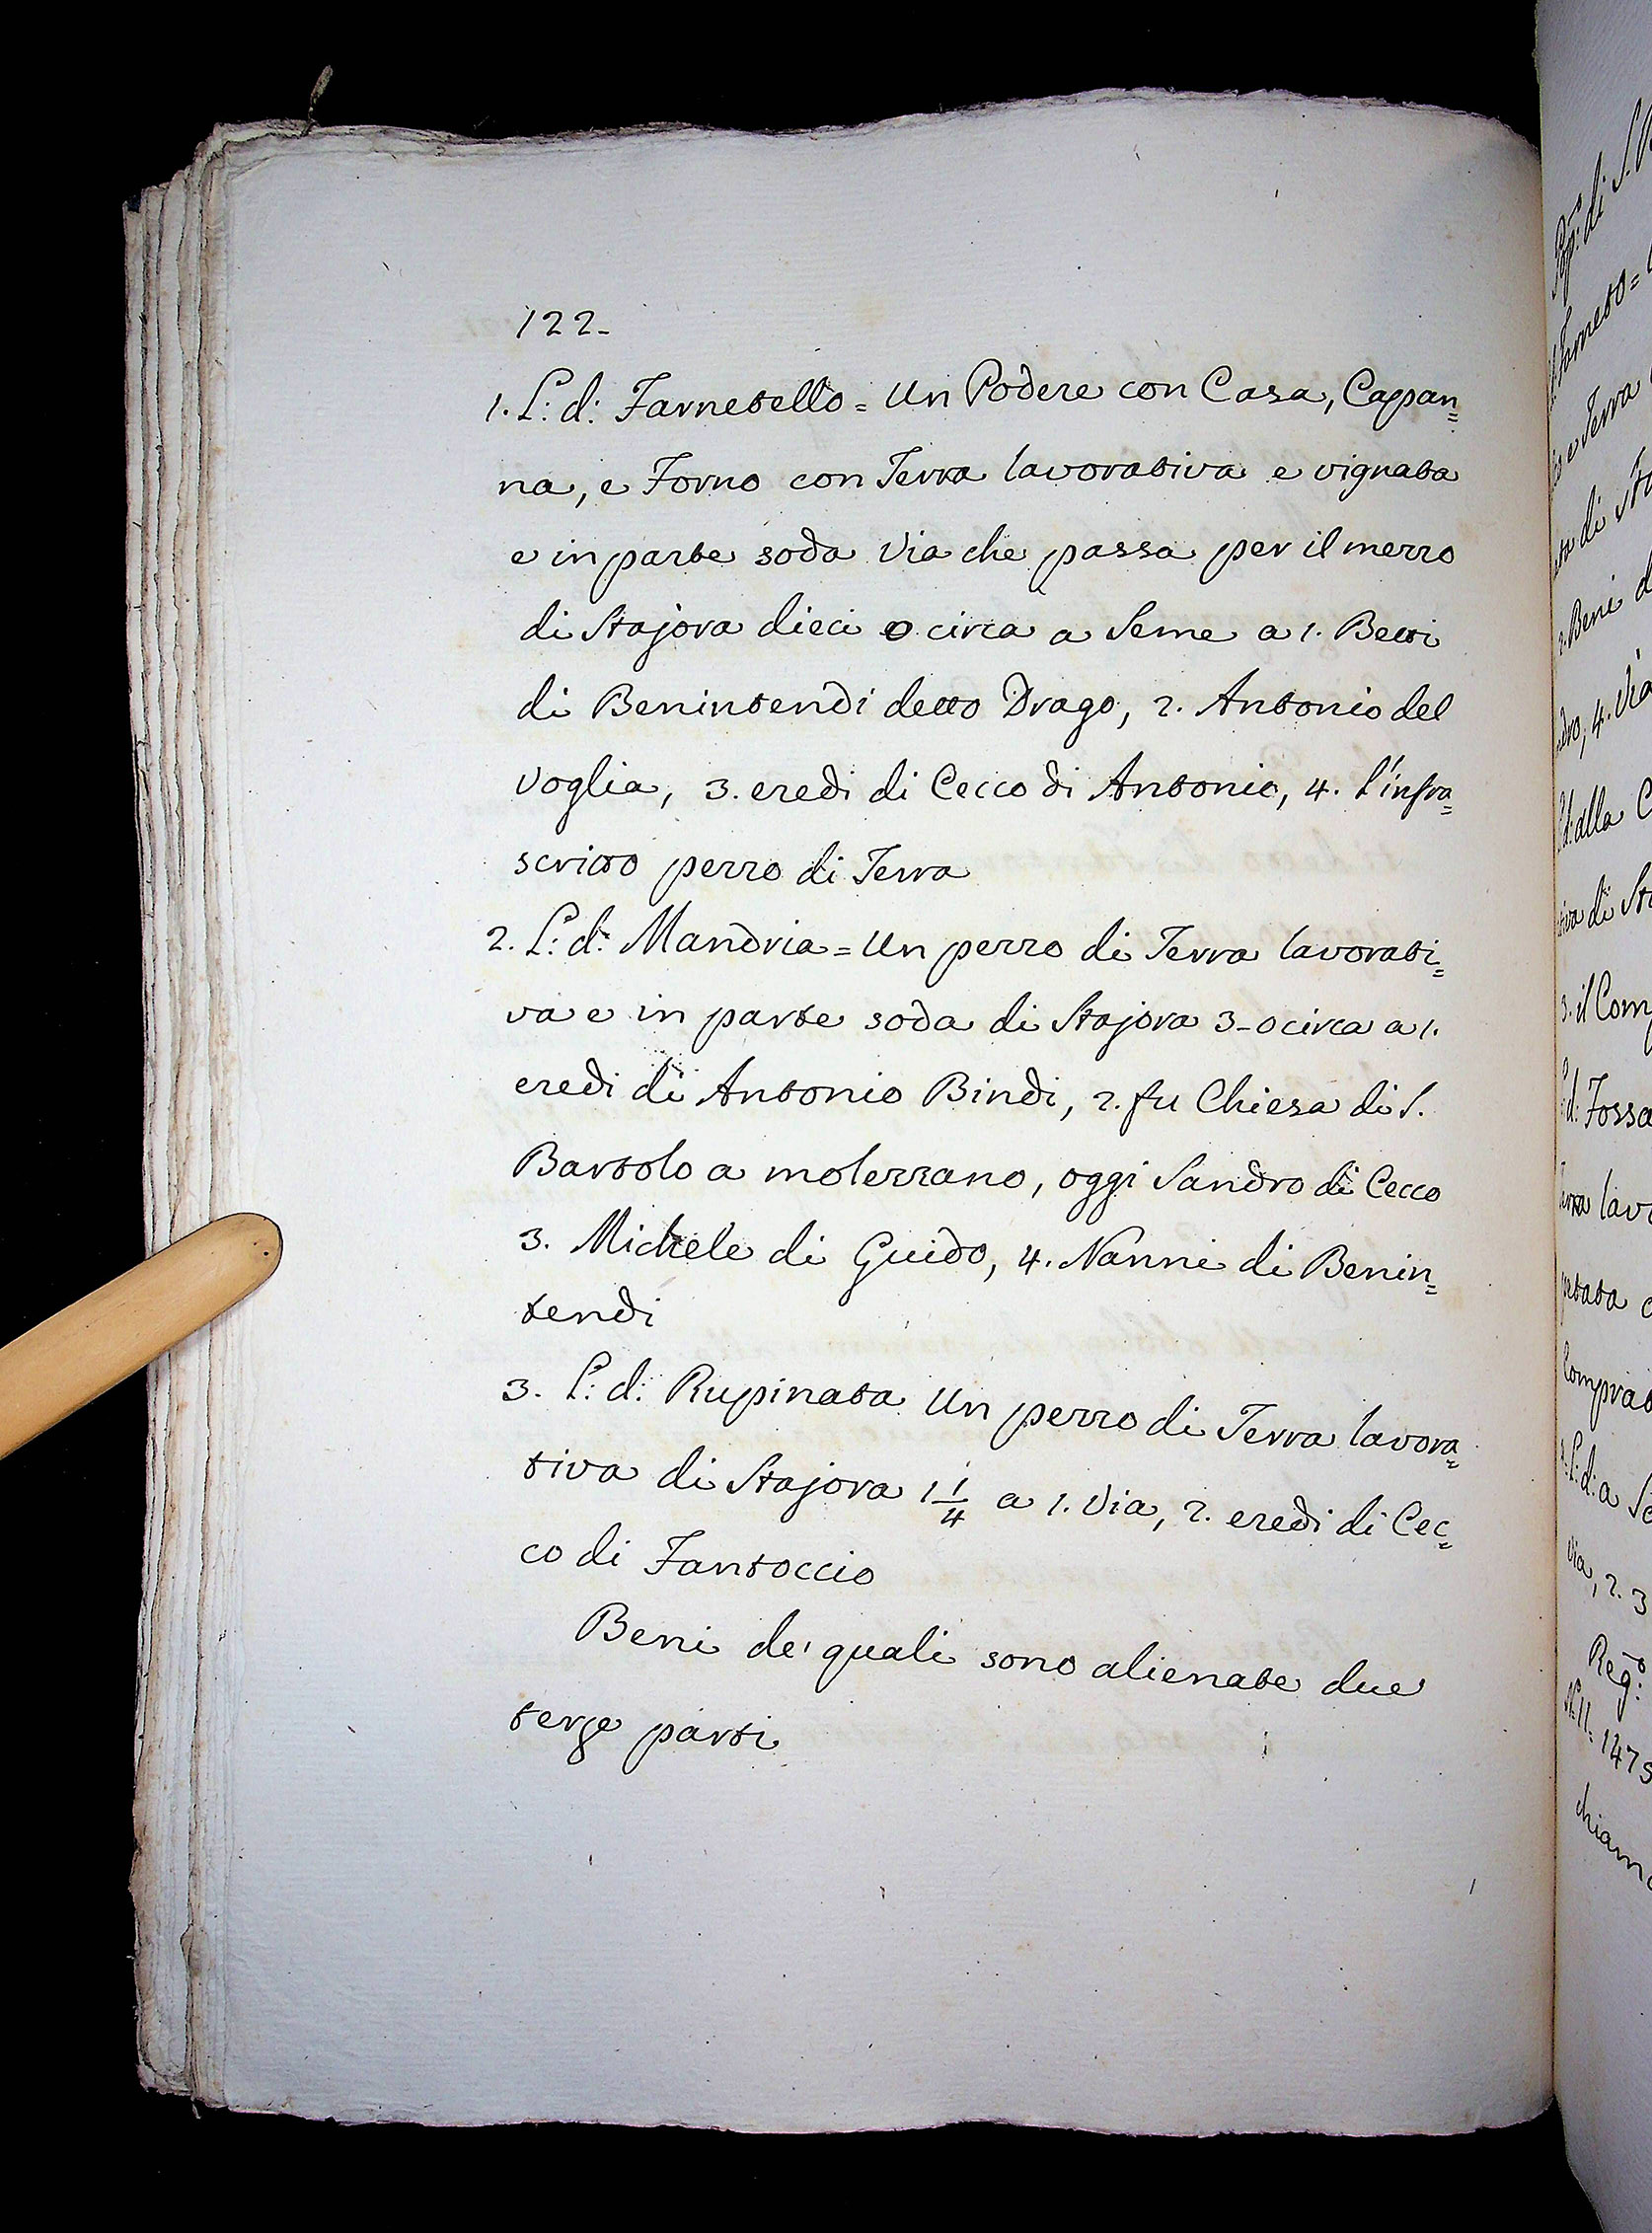 122-
1. L: d: Farnetello = Un Podere con Casa, Capan=
na, e Forno con Terra lavorativa e vignata
e in parte soda Via che passa per il mezzo
di Stajora dieci o circa a Seme a 1. Betti
di Benintendi detto Drago, 2. Antonio del
Voglia, 3. eredi di Cecco di Antonio, 4. l'infra=
scritto pezzo di Terra
2. L: d: Mandria = Un pezzo di Terra lavorati=
va e in parte soda di Stajora 3-o circa a 1.
eredi di Antonio Bindi, 2. fu Chiesa di S.
Bartolo a molezzano, oggi Sandro di Cecco
3. Michele di Guido, 4. Nanni di Benin=
tendi
3. L: d: Rupinata Un pezzo di Terra lavora=
tiva di Stajora 1 1/4 a 1. Via, 2. eredi di Cec=
co di Fantoccio
Beni de' quali sono alienate due
terze parti